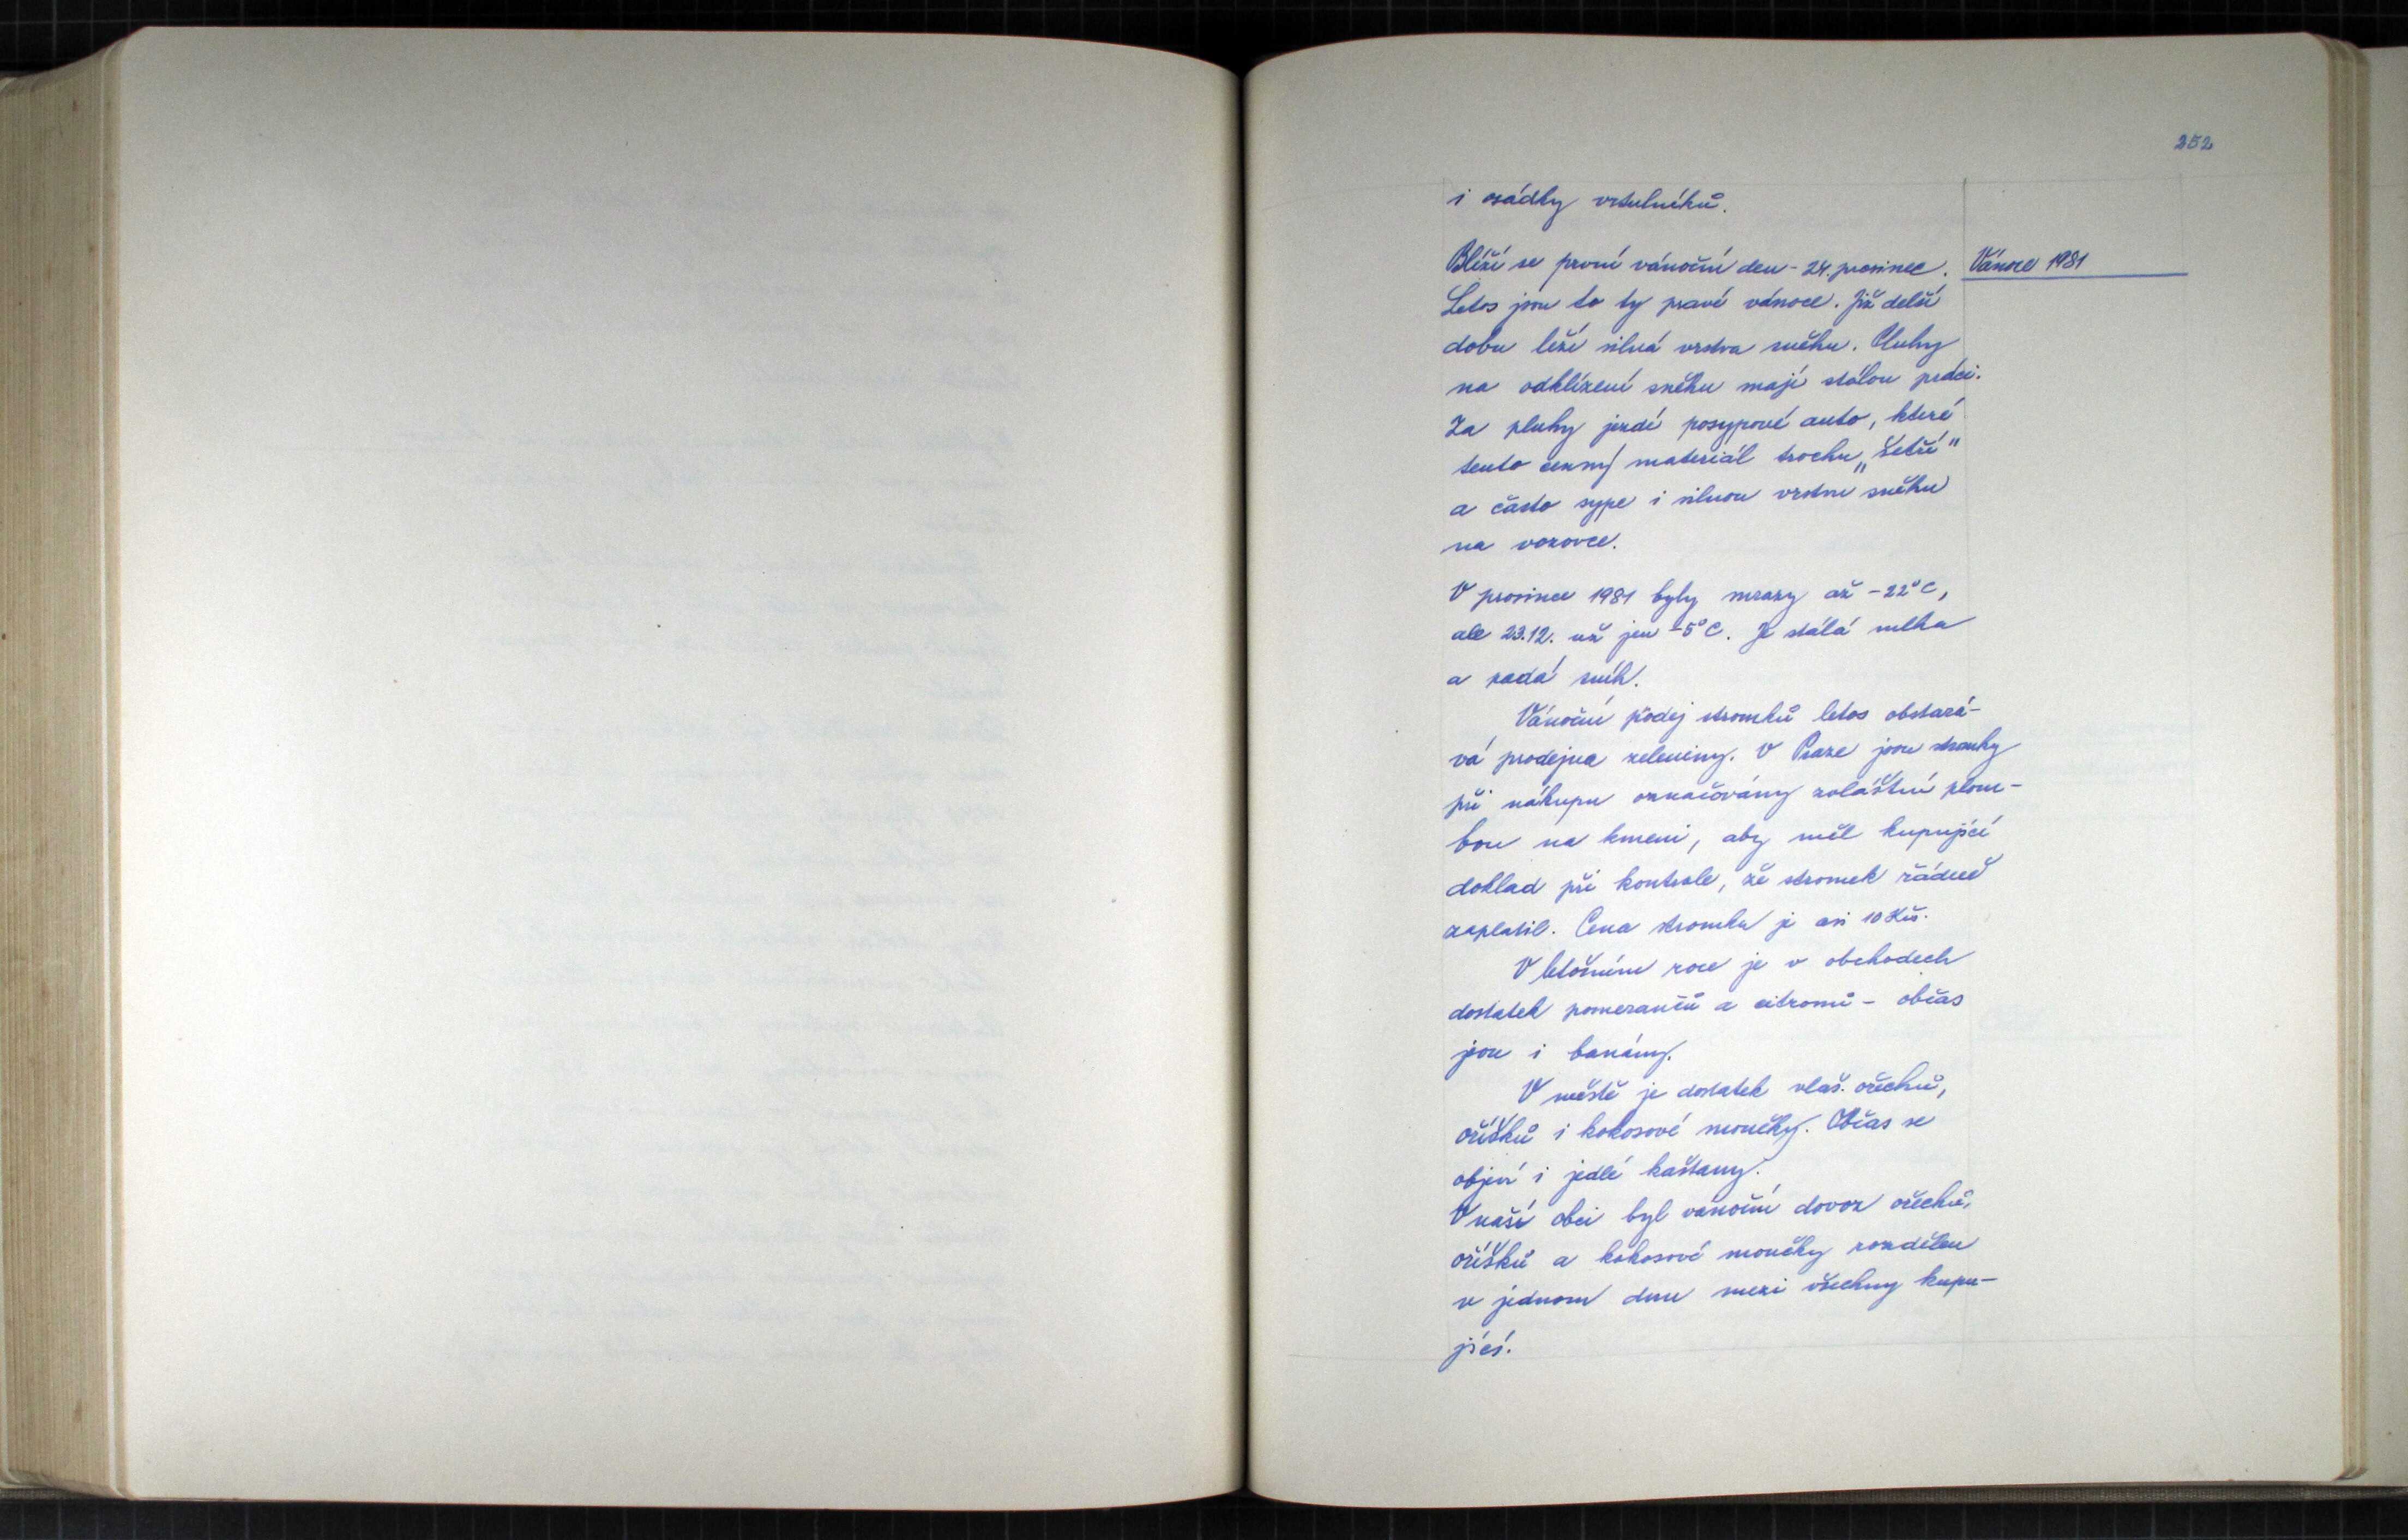 252
i osádky vrtulníků.
Blíží se první vánoční den - 24. prosinec.
Vánoce 1981
Letos jsou to ty pravé vánoce. Již delší
dobu leží silná vrstva sněhu. Pluhy
na odklízení sněhu mají stálou práci.
Za pluhy jezdí posypové auto, které
tento cenný materiál trochu „šetří"
a často sype i silnou vrstvu sněhu
na vozovce.
V prosince 1981 byly mrazy až -22°C,
ale 23.12. už jen -5°C. Je stálá mlha
a padá sníh.
Vánoční podej stromků letos obstará-
vá prodejna zeleniny. V Praze jsou stromky
při nákupu označovány zoláštní plom-
bou na kmeni, aby měl kupující
doklad při kontrole, že stromek řádně
zaplatil. Cena stromku je asi 10 Kčs.
V letošním roce je v obchodech
dostatek pomerančů a citronů - občas
jsou i banány.
V městě je dostatek vlaš. ořechů,
oříšků i kokosové moučky. Občas se
objeví i jedlé kaštany.
V naší obci byl vánoční dovoz ořechů,
oříšků a kokosové moučky rozdělen
v jednom dnu mezi všechny kupu-
jící.